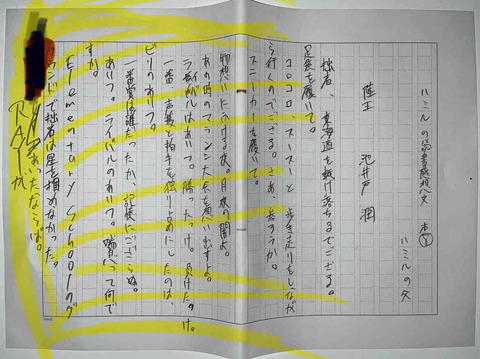 ハミルの読書感想文
ハミルの父
陸王　池井戸 潤
拙者、東海道を駆け落ちるでござる。
足袋を履いて。
コロコロ、スースーと歩き走りをしなが
ら行くのでござる。さあ、走ろうか。
スニーカーを履いて。
物想いにふける夜。月夜の闇よ。
あの時のマラソン大会を思い出すよ。
ライバルはあいつ。勝ったっけ。負けたっけ。
一番、声援と拍手を独りじめにしたのは、
ビリのあいつ。
一番賞は誰だったか、記憶にござらぬ。
あいつ。ライバルのあいつ。喰べって何で
すか。
Elementary Schoolのグ
ラウンドで拙者は星を掴めなかった。
あいたならば。
RAIが